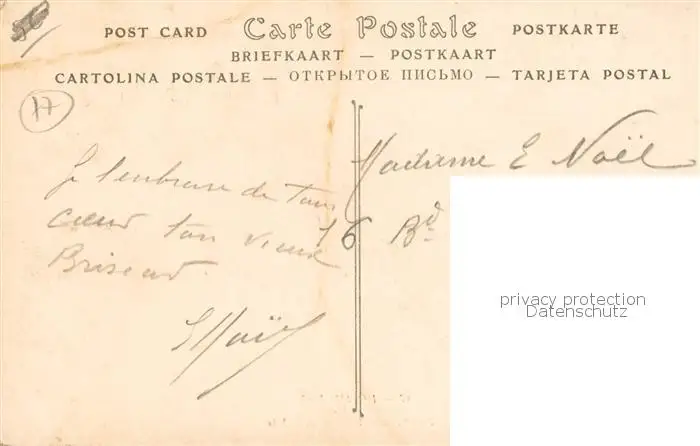 POST CARD Carte Postale POSTKARTE
BRIEFKAART — POSTKAART
CARTOLINA POSTALE — ОТКРЫТОЕ ПИСЬМО — TARJETA POSTAL
17
Je t'embrasse de tout
cœur ton vieux
Madame E Noël
16 Bd
privacy protection
Datenschutz